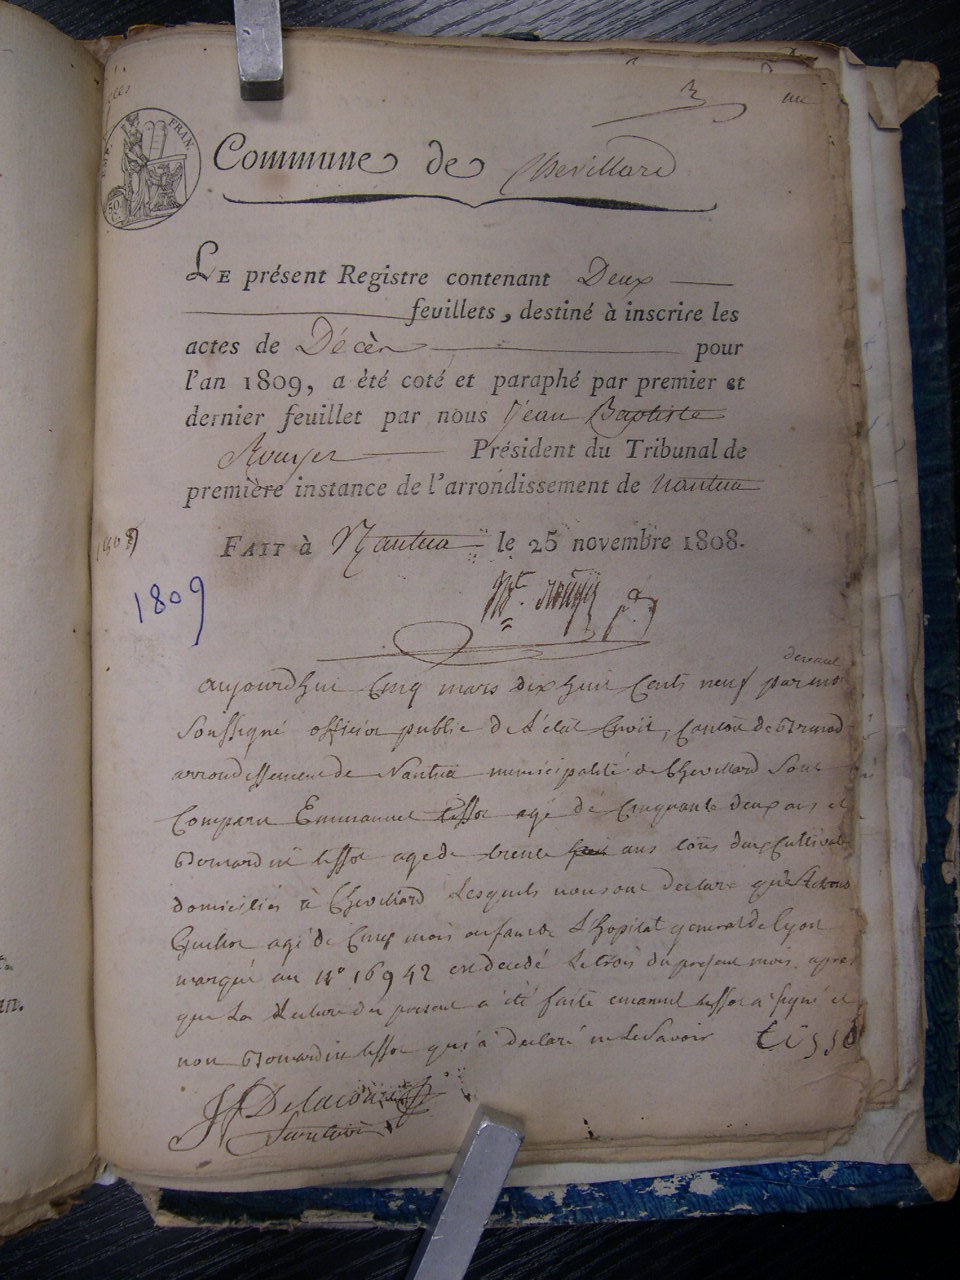 EMP. FRAN.
50 C.
Commune de Chevillard
LE présent Registre contenant Deux
feuillets, destiné à inscrire les
actes de Décès pour
l'an 1809, a été coté et paraphé par premier et
dernier feuillet par nous Jean Baptiste
Rouyer Président du Tribunal de
première instance de l'arrondissement de Nantua
FAIT à Nantua le 25 novembre 1808.
1809
aujourdhui Cinq mars dix huit Cents neuf par devant
Soussigné officier public de l'état Civil, Canton de
arrondissement de Nantua municipalité de Chevillard Sont
Comparu Emmanuel tissot agé de Cinquante deux ans et
Bernardin tissot agé de trente ans tous deux Cultivat
domiciliés à Chevillard Lesquels nous ont declaré que
agé de Cinq mois enfant de L'hopital general de Lyon
marqué au N° 16942 est decedé Le trois du present mois après
que La Lecture du present a été faite emanuel tissot a signé et
non Bernardin tissot qui a declaré ne Le Savoir tissot
Delacou